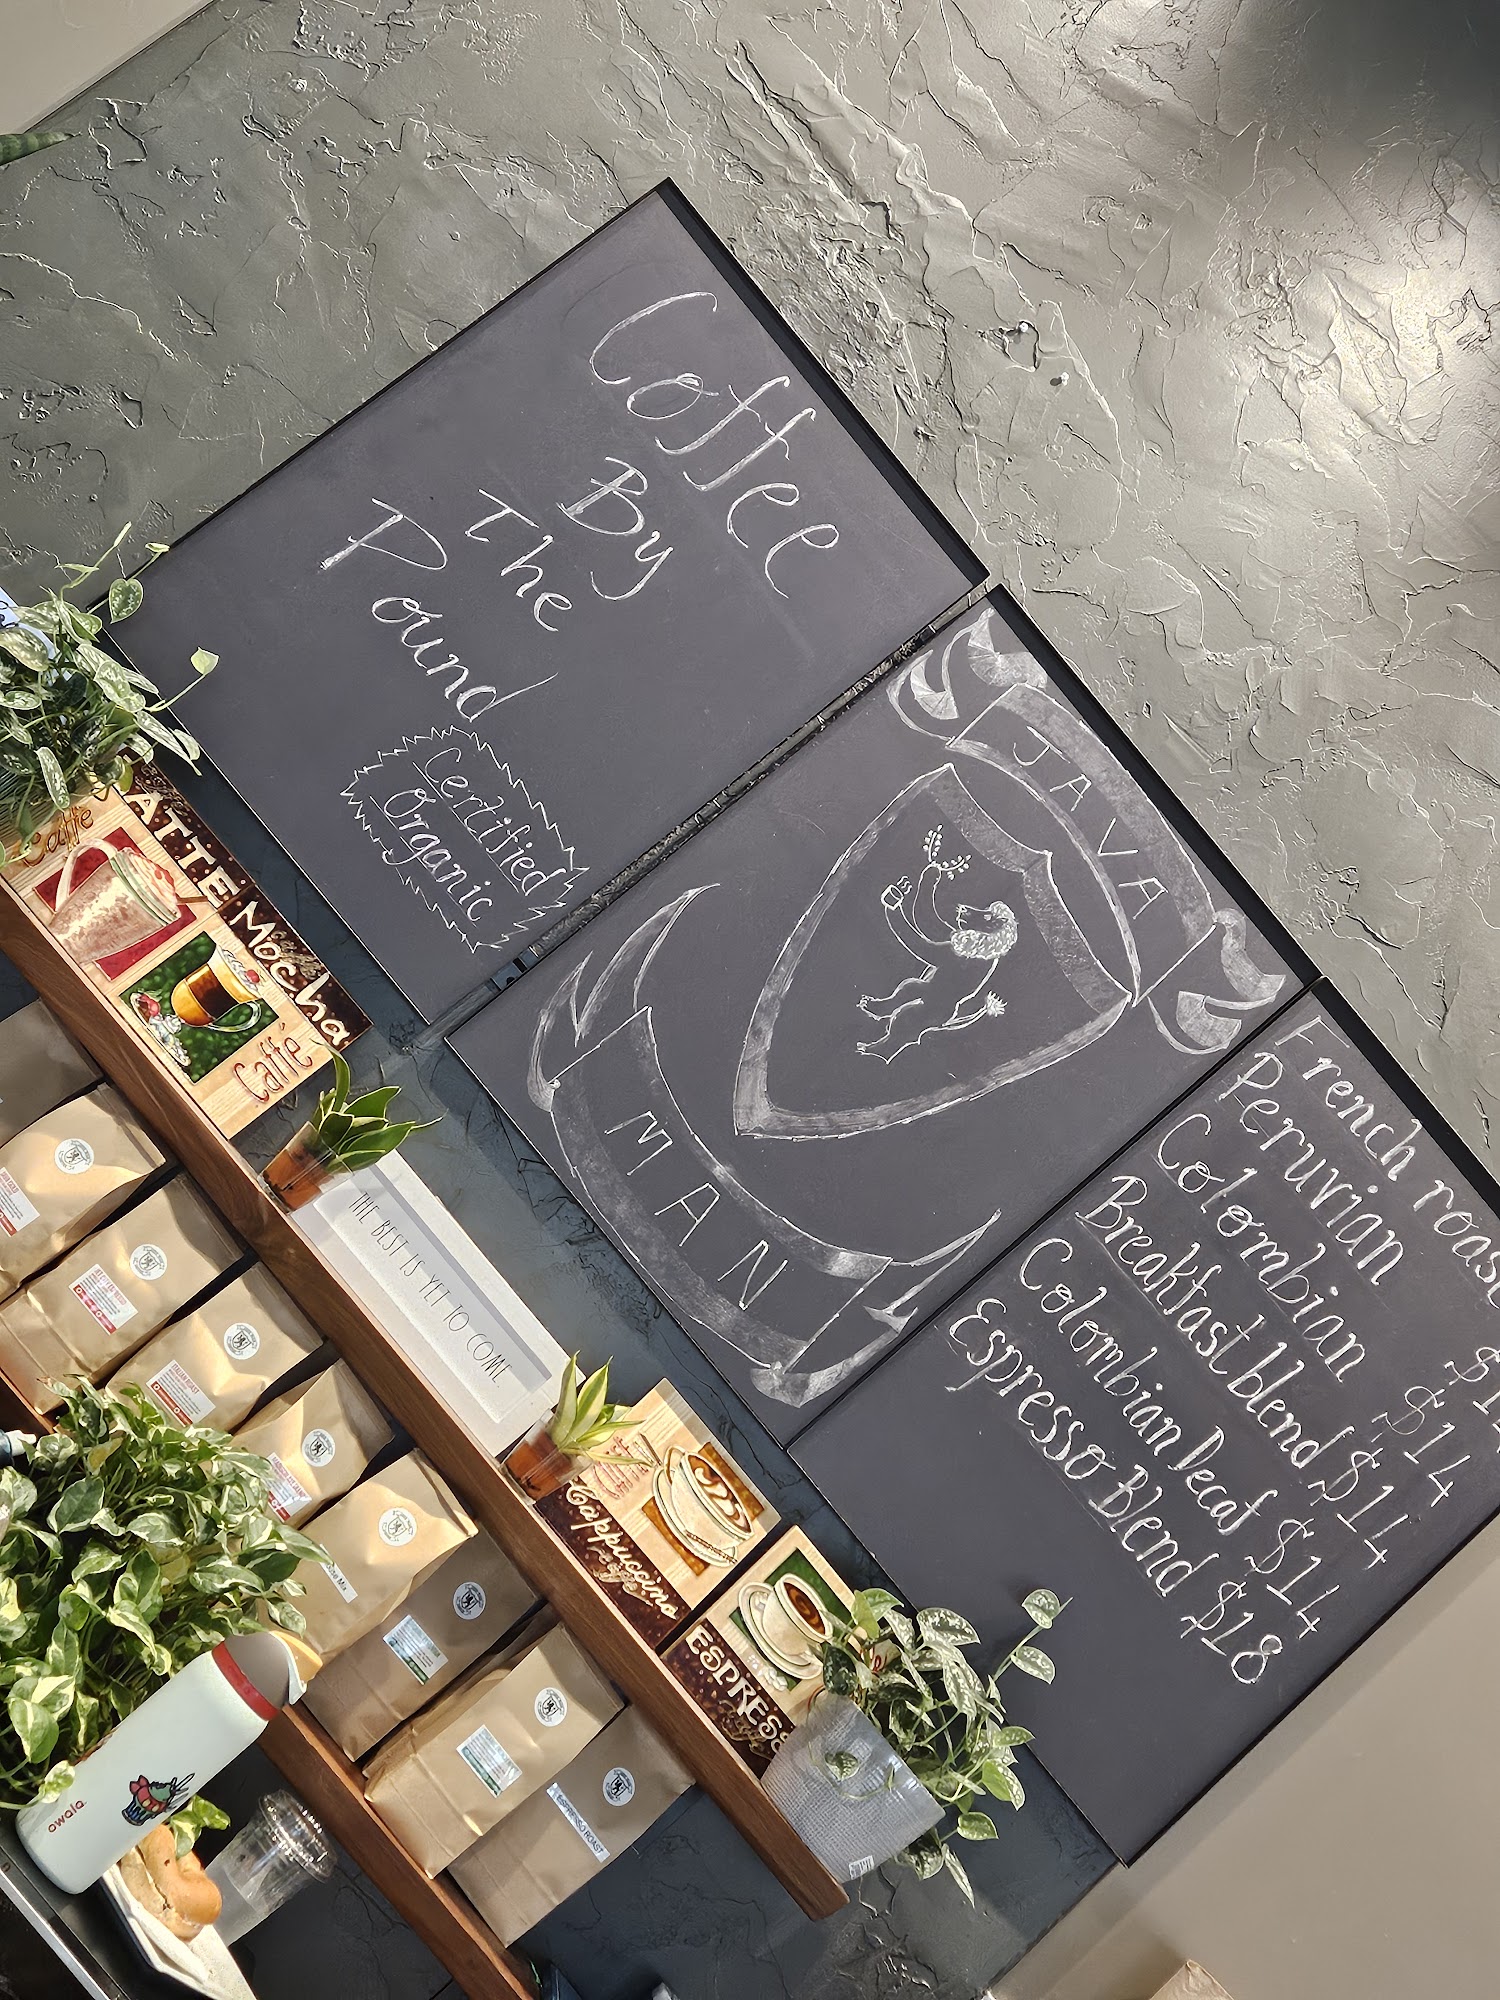 Coffee
By
The
Pound
Certified
Organic
JAVA
MAN
French roast
Peruvian $14
Colombian $14
Breakfast blend $14
Colombian Decaf $14
Espresso Blend $18
Caffé
LATTE
Mocha
Caffé
THE BEST IS YET TO COME.
Cappuccino
Caffe
ESPRESS
ESPRESSO ROAST
owala